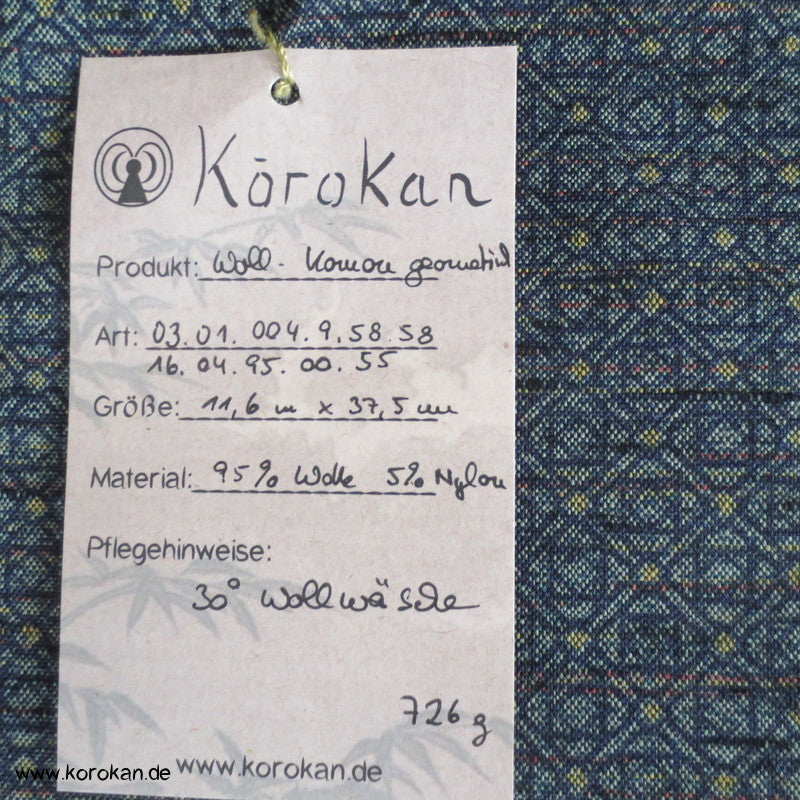 Kōrokan
Produkt: Woll - Komon geometrisch
Art: 03.01.004.9.58.58
16.04.95.00.55
Größe: 11,6 m x 37,5 cm
Material: 95% Wolle 5% Nylon
Pflegehinweise:
30° Wollwäsche
726 g
www.korokan.de
www.korokan.de